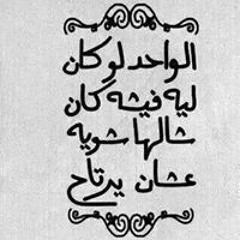 الواحد لو كان
ليه فيشه كان
شالها شويه
عشان يرتاح